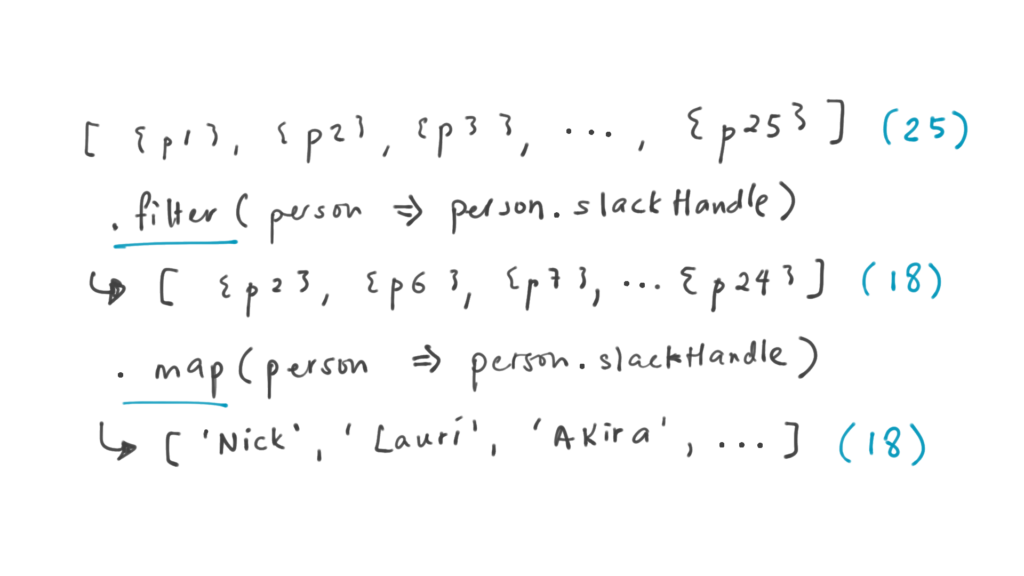 [ {p1}, {p2}, {p3}, ..., {p25} ] (25)
.filter(person => person.slackHandle)
↳ [ {p2}, {p6}, {p7}, ... {p24} ] (18)
.map(person => person.slackHandle)
↳ ['Nick', 'Lauri', 'Akira', ...] (18)